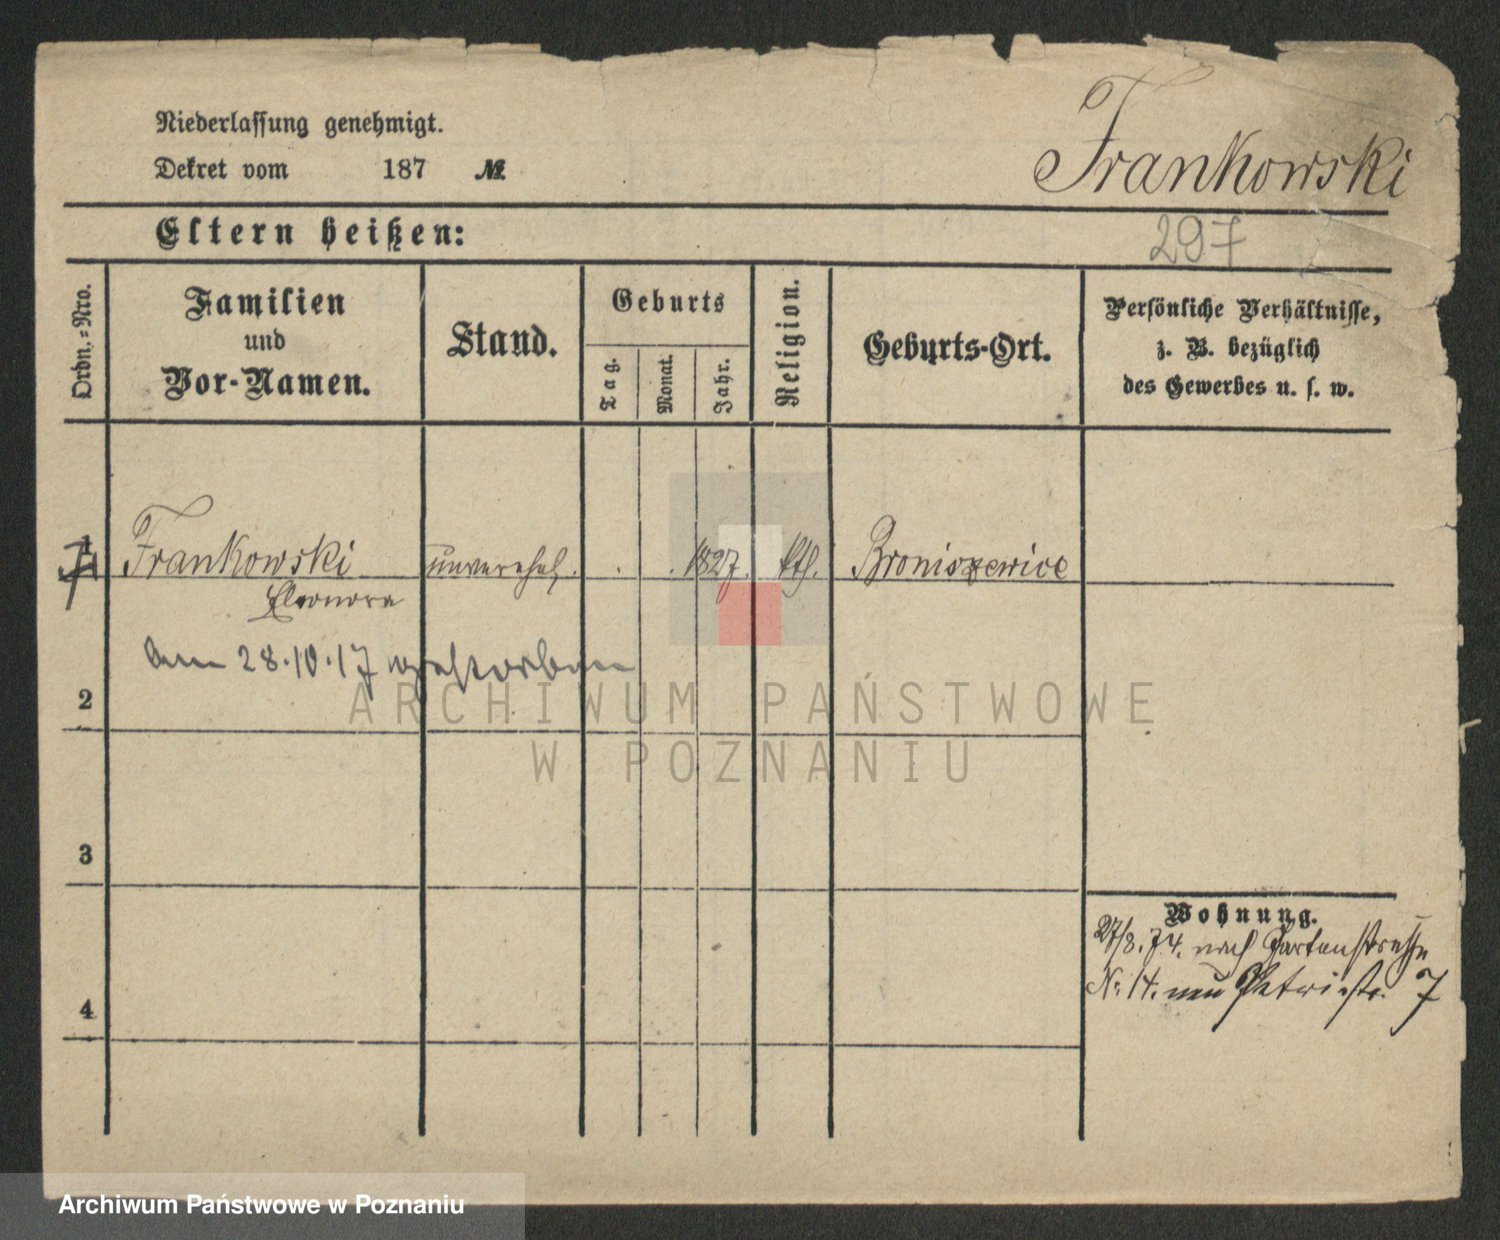 Niederlassung genehmigt.
Dekret vom 187 №
Frankowski
297
Eltern heißen:
Ordn.=Nro.
Familien
und
Vor-Namen.
Stand.
Geburts
Tag.
Monat.
Jahr.
Religion.
Geburts-Ort.
Persönliche Verhältnisse,
z. B. bezüglich
des Gewerbes u. s. w.
1 Frankowski unverehel. . . 1827. kth. Broniszewice
Eleonora
am 28.10.17 gestorben
2
3
4
Wohnung.
27/8.74. nach Gartenstraße
No: 14. neu Petristr. 7
ARCHIWUM PAŃSTWOWE
W POZNANIU
Archiwum Państwowe w Poznaniu